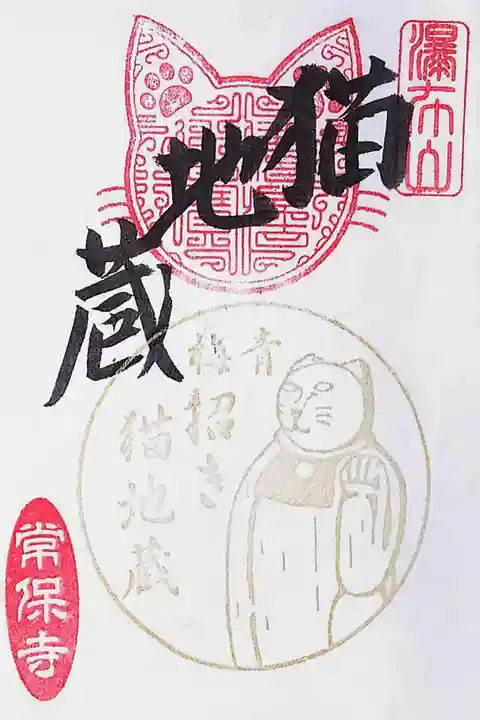 瀑布山
猫地蔵
青梅
招き
猫地蔵
常保寺